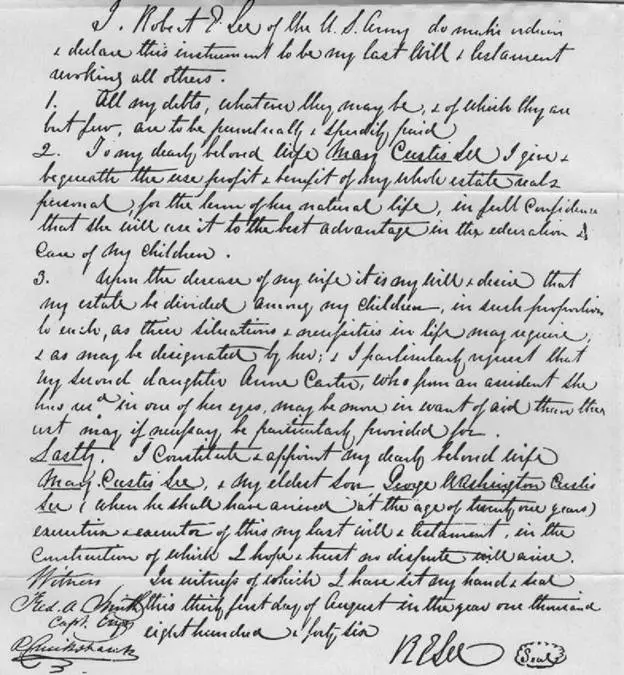 I. Robert E. Lee of the U.S. Army do make ordain
& declare this instrument to be my last Will & testament
revoking all others.
1. All my debts, whatever they may be, & of which they are
but few, are to be punctually & speedily paid
2. To my dearly beloved wife Mary Custis Lee I give &
bequeath the use profit & benefit of my whole estate real &
personal, for the term of her natural life, in full confidence
that she will use it to the best advantage in the education &
care of my children.
3. Upon the decease of my wife it is my will & desire that
my estate be divided among my children, in such proportions
to each, as their situations & necessities in life may require,
& as may be designated by her; & I particularly request that
my second daughter Anne Carter, who from an accident she
has recd in one of her eyes, may be more in want of aid than the
rest may if necessary be particularly provided for.
Lastly. I constitute & appoint my dearly beloved wife
Mary Custis Lee, & my eldest son George Washington Custis
Lee (when he shall have arrived at the age of twenty one years)
executrix & executor of this my last will & testament, in the
construction of which I hope & trust no dispute will arise.
Witness In witness of which I have set my hand & seal
Fred. A. Smith this thirty first day of August in the year one thousand
Capt. Engrs
eight hundred & forty six
R E Lee Seal